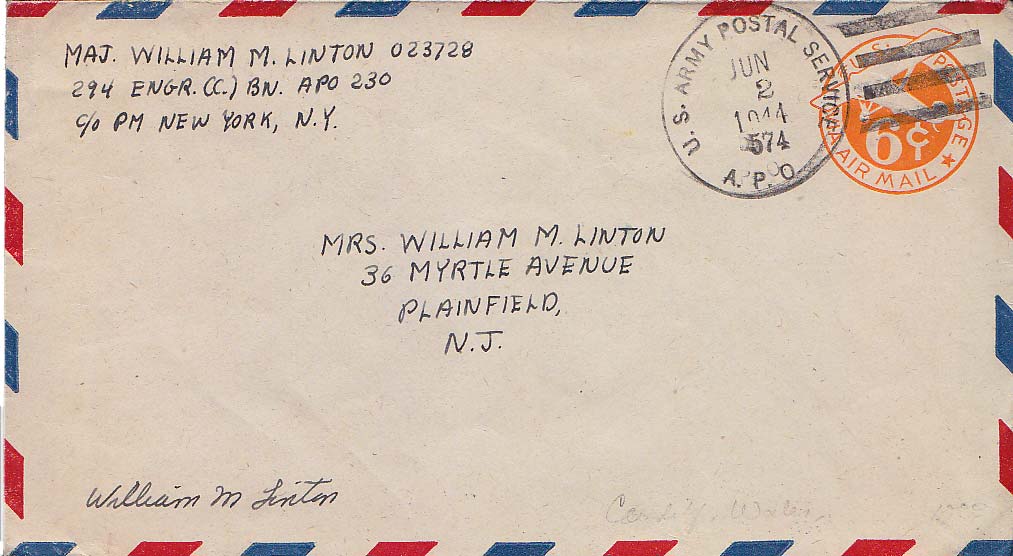 MAJ. WILLIAM M. LINTON 023728
294 ENGR. (C.) BN. APO 230
c/o PM NEW YORK, N.Y.
U.S. ARMY POSTAL SERVICE
JUN
2
1944
574
A.P.O.
U.S. POSTAGE
6¢
VIA AIR MAIL
MRS. WILLIAM M. LINTON
36 MYRTLE AVENUE
PLAINFIELD,
N.J.
William M Linton
Cardiff, Wales